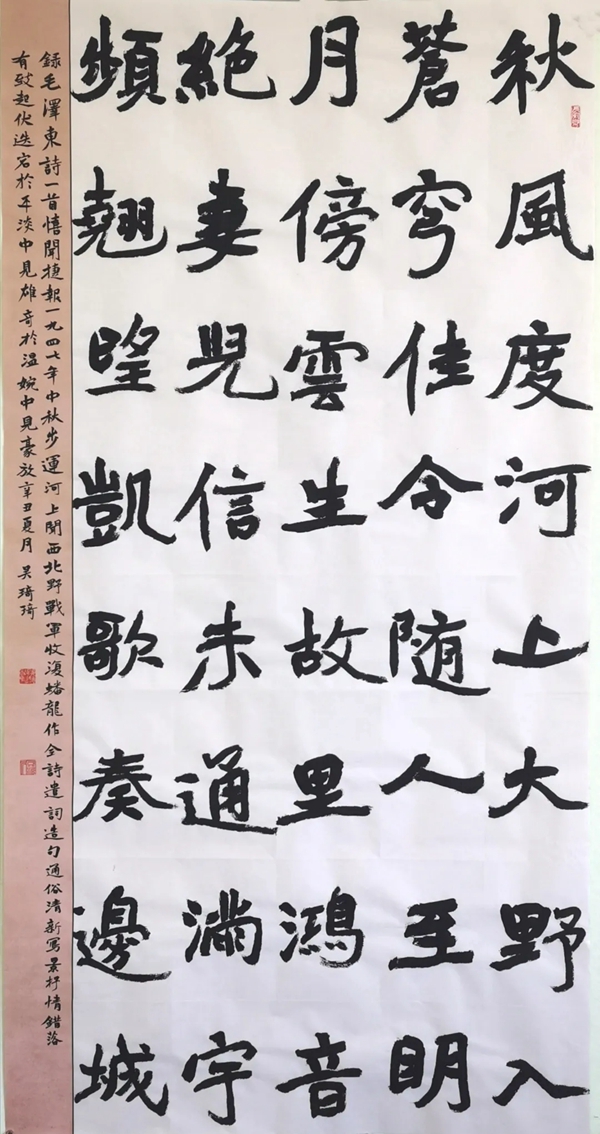 秋風度河上大野入
蒼穹佳令随人至明
月傍雲生故里鴻音
絶妻兒信未通滿宇
頻翹望凱歌奏邊城
錄毛澤東詩一首憘聞捷報一九四七年中秋步運河上聞西北野戰軍收復蟠龍作全詩遣詞造句通俗清新寫景抒情錯落
有致起伏迭宕於平淡中見雄奇於温婉中見豪放辛丑夏月 吴琦琦